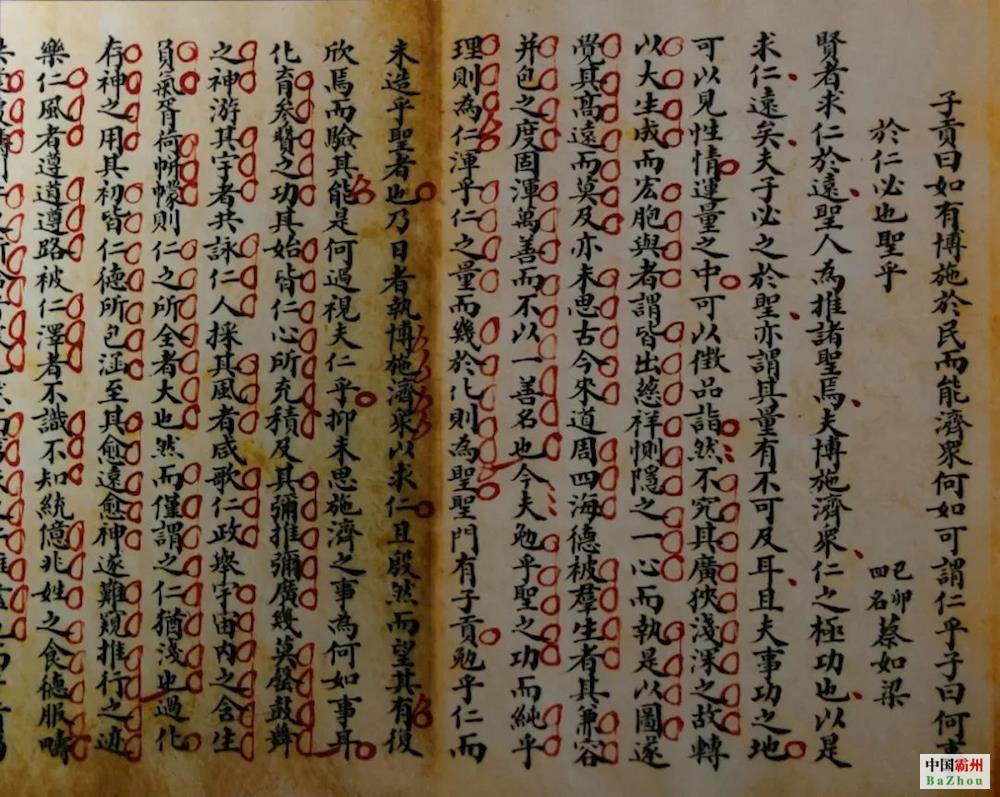 子貢曰如有博施於民而能濟衆何如可謂仁乎子曰何事
於仁必也聖乎
己卯
四名
蔡如梁
賢者求仁於遠聖人為推諸聖焉夫博施濟衆仁之極功也以是
求仁遠矣夫子必之於聖亦謂其量有不可及耳且夫事功之地
可以見性情運量之中可以徵品詣然不究其廣狹淺深之故轉
以大生成而宏胞與者謂皆出慈祥惻隱之一心而執是以圖遂
覺其高遠而莫及亦未思古今來道周四海德被羣生者其兼容
并包之度固渾萬善而不以一善名也今夫勉乎聖之功而純乎
理則為仁渾乎仁之量而幾於化則為聖聖門有子貢勉乎仁而
未造乎聖者也乃日者執博施濟衆以求仁且殷然而望其有復
欣焉而驗其能是何過視夫仁乎抑未思施濟之事為何如事耳
化育參贊之功其始皆仁心所充積及其彌推彌廣幾莫罄鼓舞
之神游其宇者共詠仁人採其風者咸歌仁政舉宇宙內之含生
負氣胥荷帡幪則仁之所全者大也然而僅謂之仁猶淺也過化
存神之用其初皆仁德所包涵至其愈遠愈神遂難窺推行之迹
樂仁風者遵遵路被仁澤者不識不知統億兆姓之食德服疇
中国霸州
BaZhou